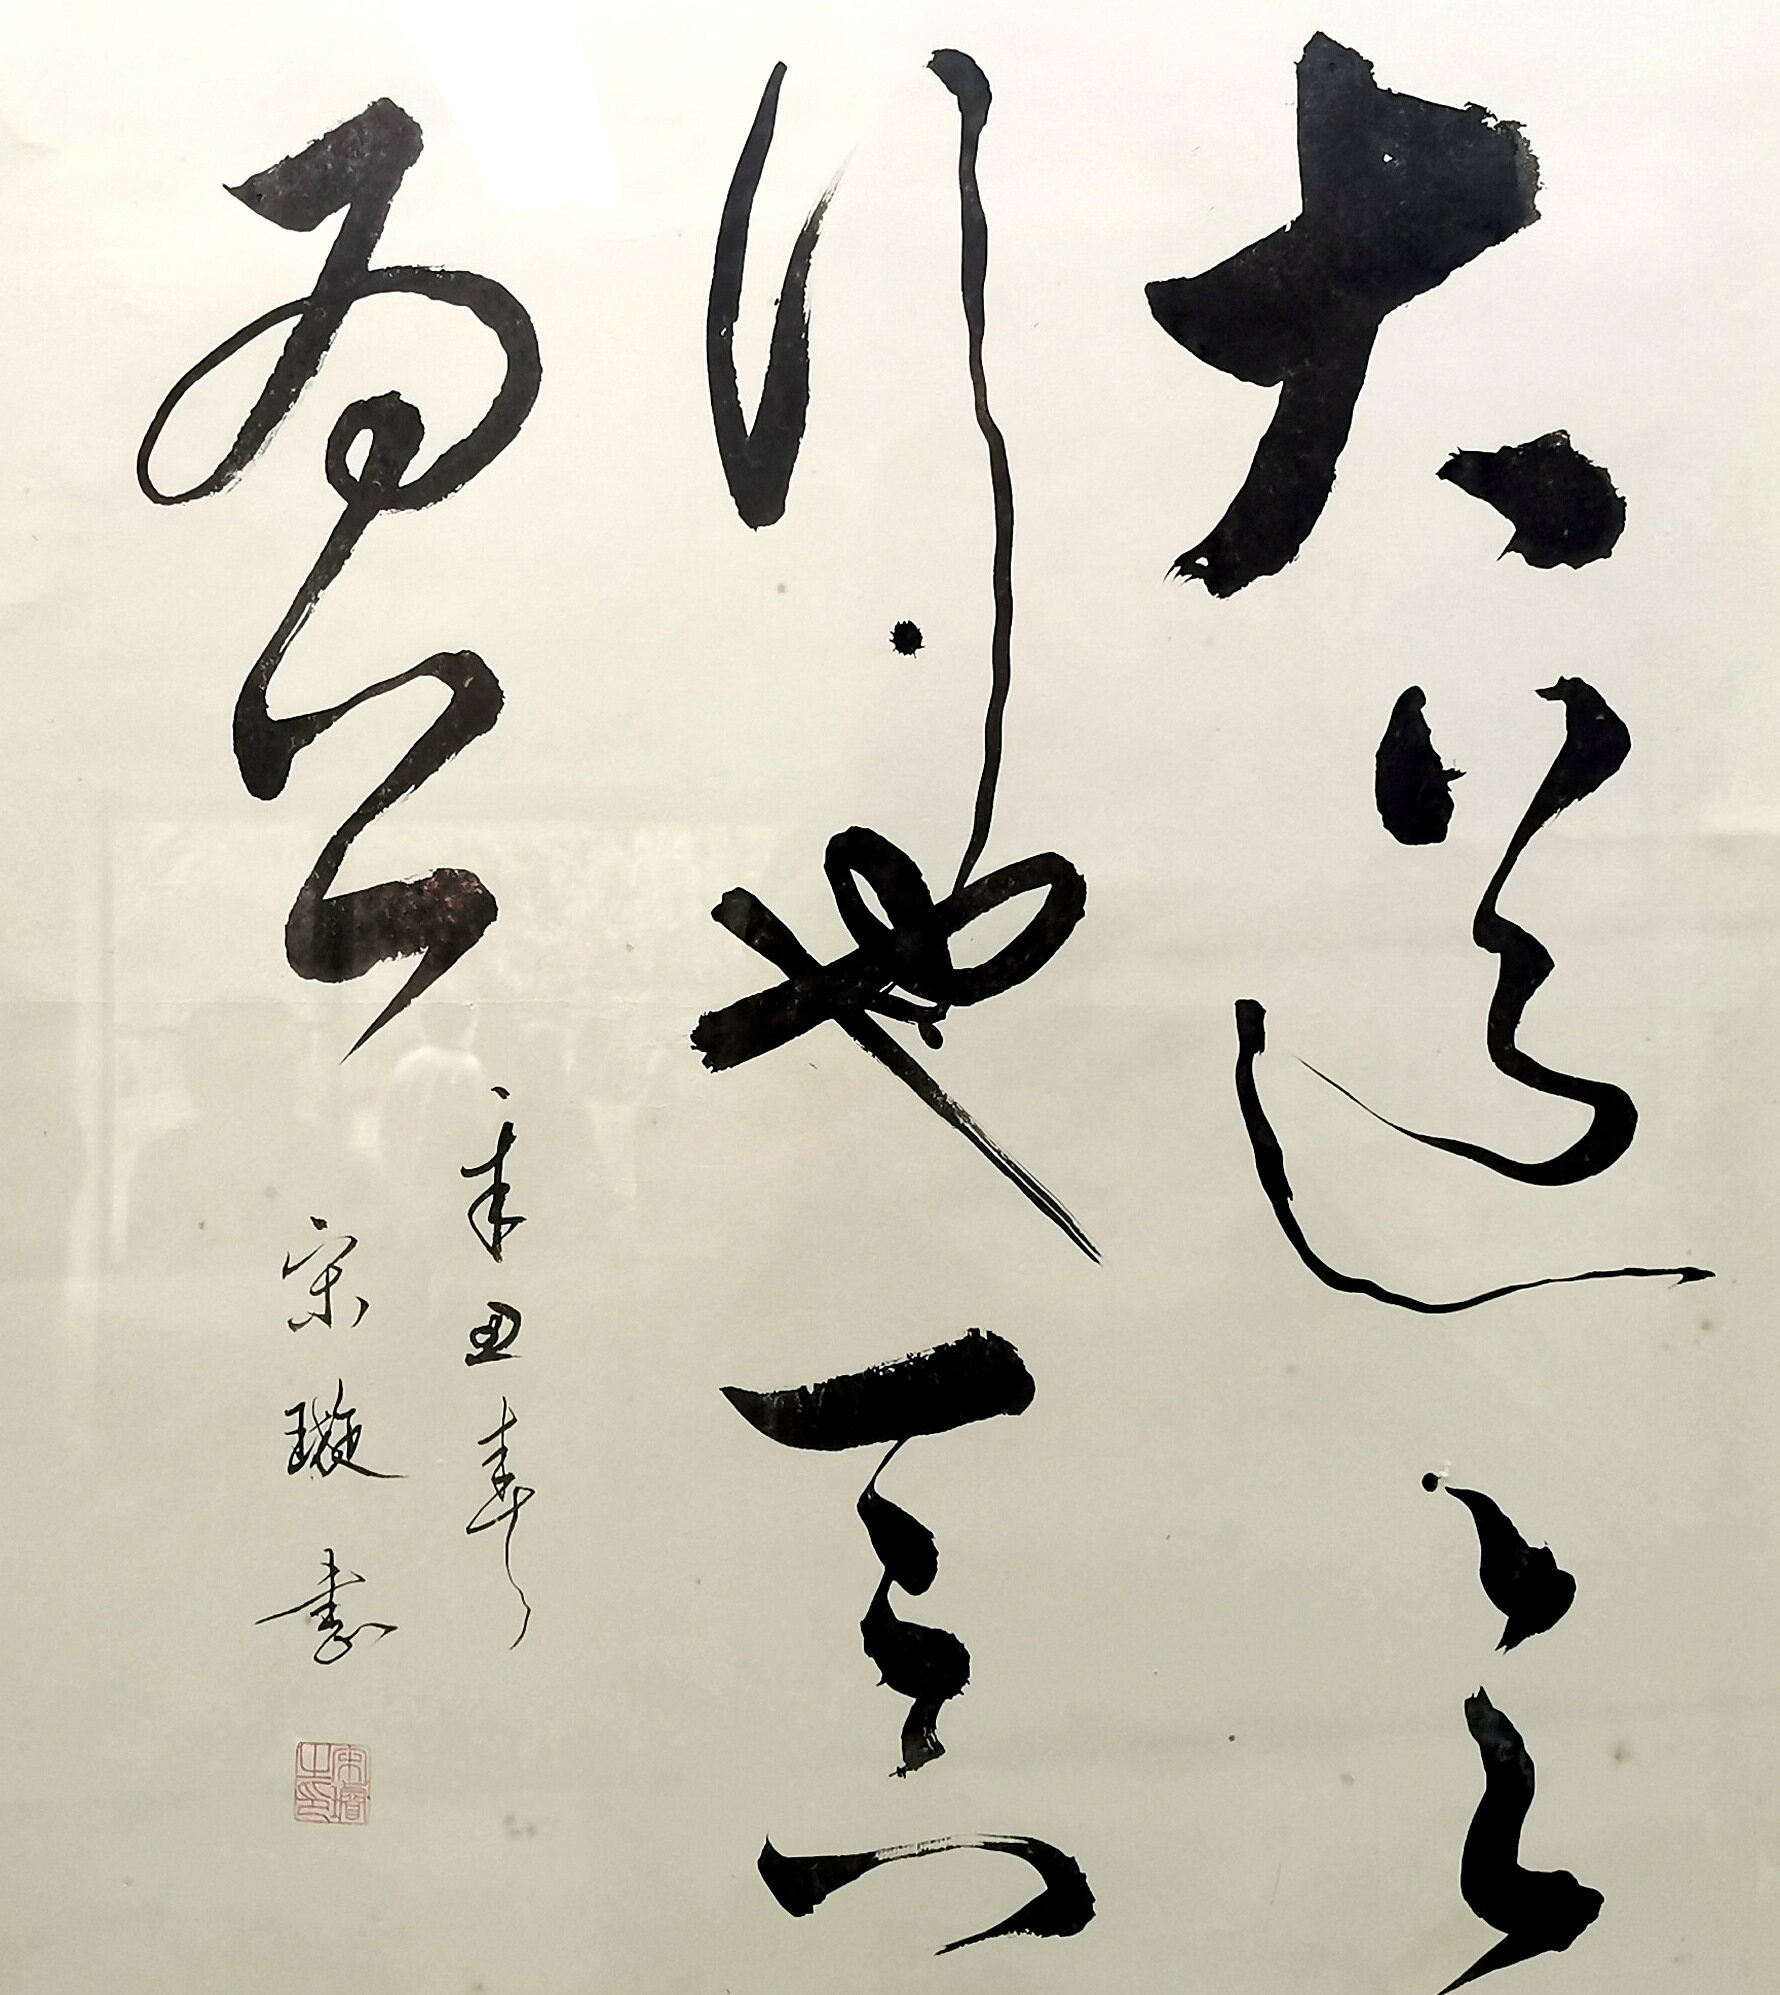 大道之
行也天下
为公
辛丑春
宋璇书